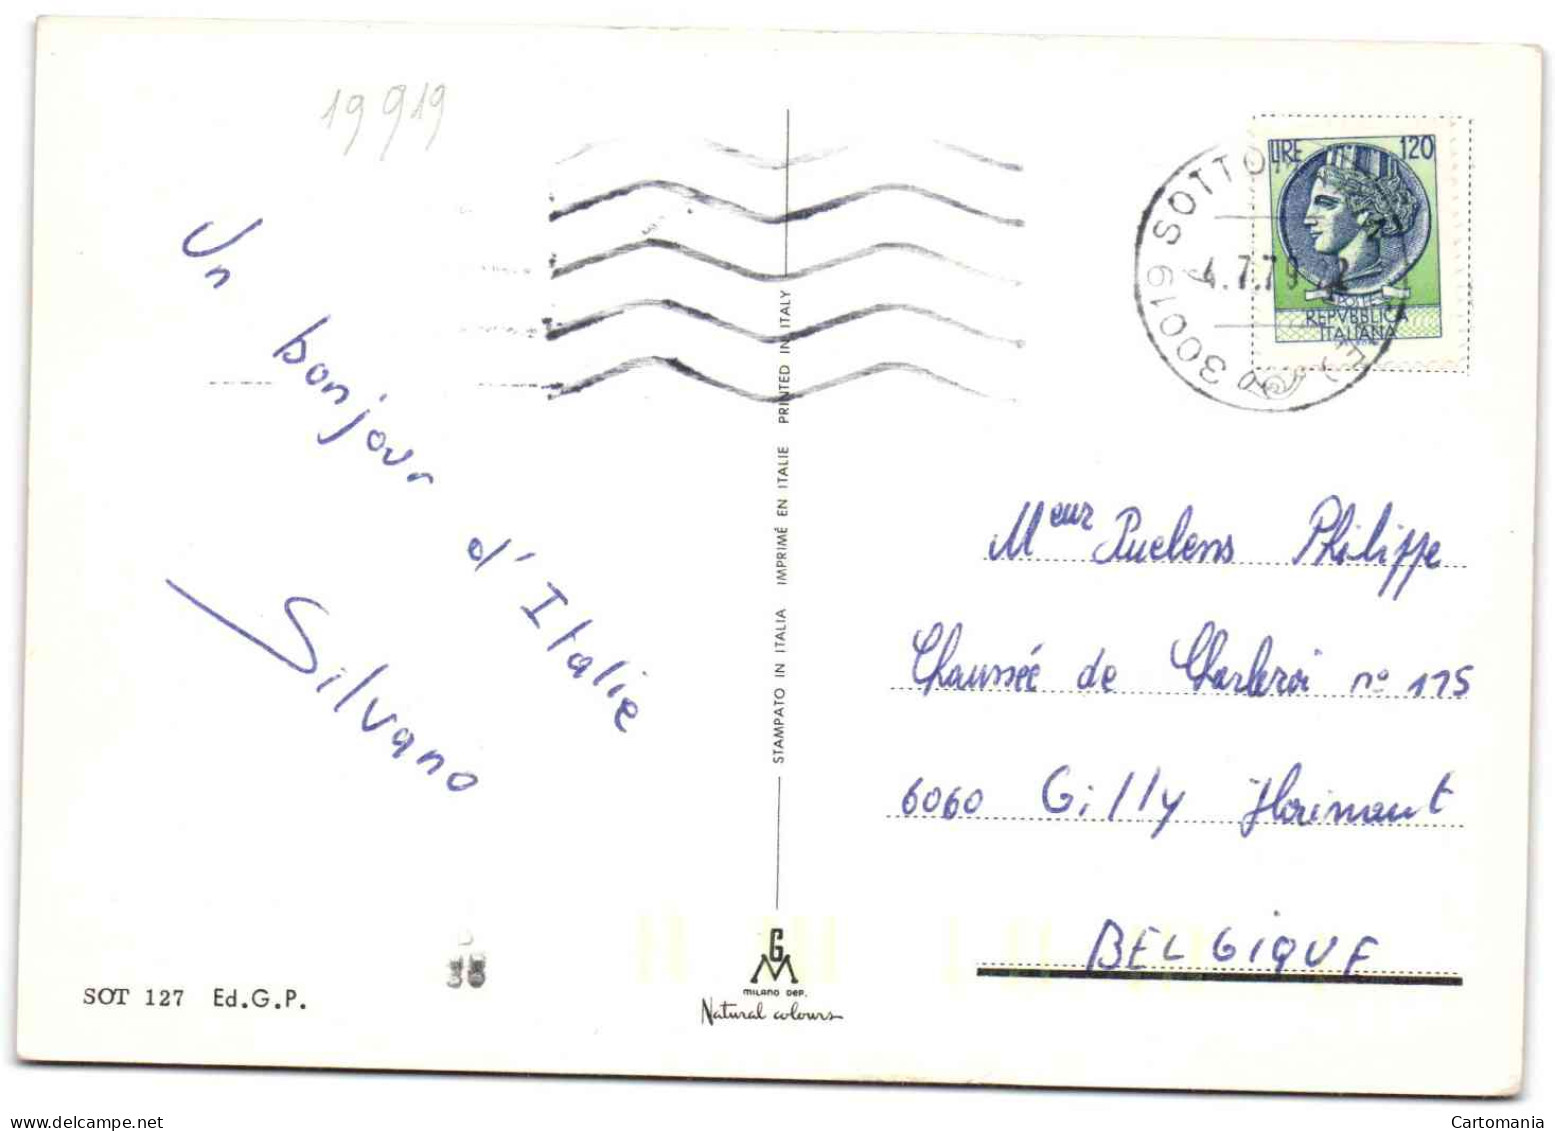 19919
Un bonjour d'Italie
Silvano
SOT 127 Ed.G.P.
STAMPATO IN ITALIA IMPRIMÉ EN ITALIE PRINTED IN ITALY
GM
MILANO DEP.
Natural colours
30019 SOTTO
4.7.79
LIRE 120
POSTE
REPVBBLICA
ITALIANA
Meur Puelens Philippe
Chaussée de Charleroi n° 175
6060 Gilly Hainaut
BELGIQUE
www.delcampe.net
Cartomania